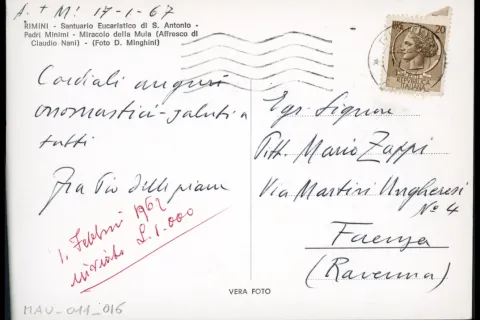 A. + M! 17-1-67
RIMINI - Santuario Eucaristico di S. Antonio -
Padri Minimi - Miracolo della Mula (Affresco di
Claudio Nani) - (Foto D. Minghini)
Cordiali auguri
onomastici - saluti a
tutti
Fra Pio
1. Febbraio 1967
L. 1.000
20
ITALIANA
Egr. Signore
Pitt. Mario Zappi
Via Martiri Ungheresi
No 4
Faenza
(Ravenna)
VERA FOTO
MAU_011_016